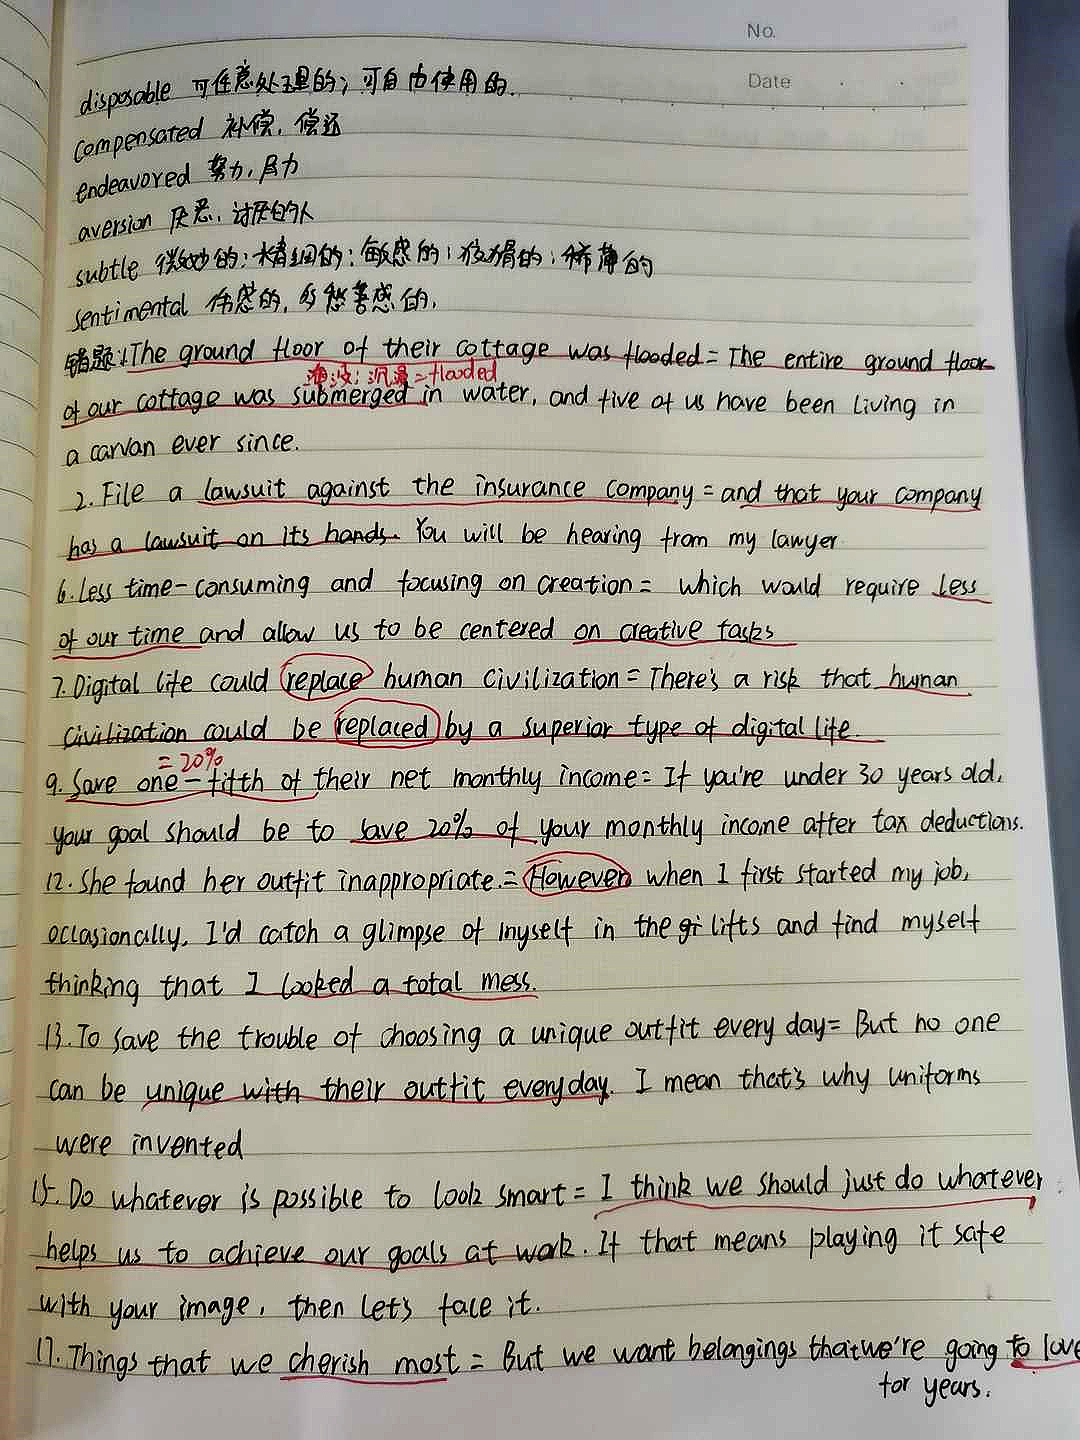 No.
Date
disposable 可任意处理的；可自由使用的.
compensated 补偿，偿还
endeavored 努力，尽力
aversion 厌恶，讨厌的人
subtle 微妙的；精细的；敏感的；狡猾的；稀薄的
sentimental 伤感的，多愁善感的，
错题：1.The ground floor of their cottage was flooded = The entire ground floor
淹没；沉没 = flooded
of our cottage was submerged in water, and five of us have been living in
a carvan ever since.
2. File a lawsuit against the insurance company = and that your company
has a lawsuit on its hands. You will be hearing from my lawyer.
6. Less time-consuming and focusing on creation = which would require less
of our time and allow us to be centered on creative tasks
7. Digital life could replace human civilization = There's a risk that human
civilization could be replaced by a superior type of digital life.
= 20%
9. Save one-fifth of their net monthly income = If you're under 30 years old,
your goal should be to save 20% of your monthly income after tax deductions.
12. She found her outfit inappropriate. = However when I first started my job,
occasionally, I'd catch a glimpse of myself in the lifts and find myself
thinking that I looked a total mess.
13. To save the trouble of choosing a unique outfit every day = But no one
can be unique with their outfit everyday. I mean that's why uniforms
were invented
15. Do whatever is possible to look smart = I think we should just do whatever
helps us to achieve our goals at work. If that means playing it safe
with your image, then let's face it.
17. Things that we cherish most = But we want belongings that we're going to love
for years.